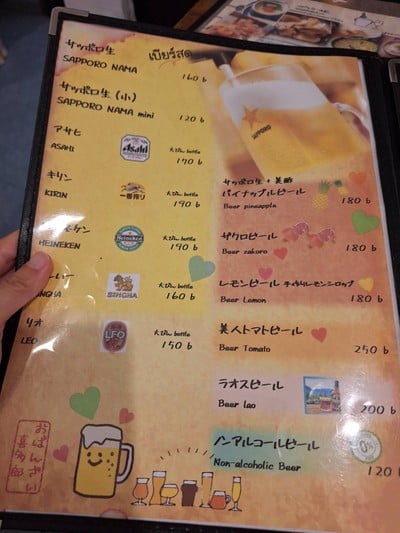 サッポロ生
SAPPORO NAMA
เบียร์สด
160 ฿
サッポロ生 (小)
SAPPORO NAMA mini
120 ฿
アサヒ
ASAHI
Asahi
大びん bottle
170 ฿
キリン
KIRIN
一番搾り
大びん bottle
190 ฿
ネケン
HEINEKEN
Heineken
大びん bottle
190 ฿
SINGHA
大びん bottle
160 ฿
リオ
LEO
LEO
大びん bottle
150 ฿
SAPPORO
サッポロ生 + 美酢
パイナップルビール
Beer pineapple
180 ฿
ザクロビール
Beer zakoro
180 ฿
レモンビール 手作りレモンシロップ
Beer Lemon
180 ฿
美人トマトビール
Beer Tomato
250 ฿
ラオスビール
Beer lao
200 ฿
ノンアルコールビール
Non-alcoholic Beer
120 ฿
おばんざい
喜多郎